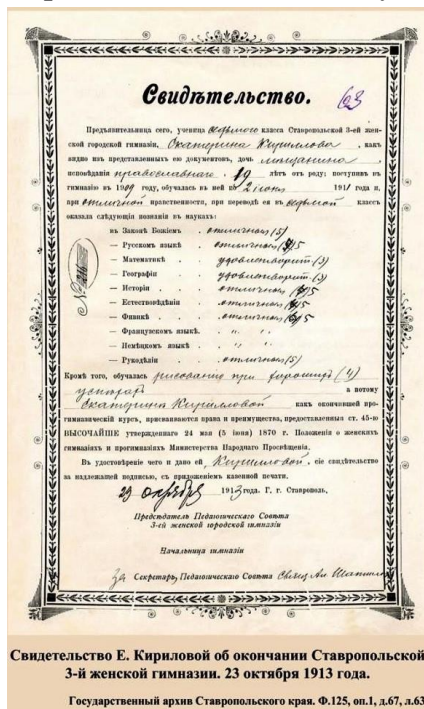 Свидѣтельство.
63
Предъявительница сего, ученица седьмого класса Ставропольской 3-ей жен-
ской городской гимназіи, Екатерина Кириллова, какъ
видно изъ представленныхъ ею документовъ, дочь мѣщанина,
исповѣданія православнаго, 19 лѣтъ отъ роду; поступивъ въ
гимназію въ 1909 году, обучалась въ ней по 2 іюня 1911 года и,
при отличной нравственности, при переводѣ ея въ седьмой классъ
оказала слѣдующія познанія въ наукахъ:
въ Законѣ Божіемъ . отличныя (5)
— Русскомъ языкѣ . отличныя 5
— Математикѣ . удовлетворит. (3)
— Географіи . удовлетворит. (3)
— Исторіи . отличныя 5
— Естествовѣдѣніи . отличныя 5
— Физикѣ . отличныя 5
— Французскомъ языкѣ. „ „
— Нѣмецкомъ языкѣ . „ „
— Рукодѣліи . отличныя (5)
№
Кромѣ того, обучалась рисованію при хорошихъ (4)
успѣхахъ а потому
Екатеринѣ Кирилловой какъ окончившей про-
гимназическій курсъ, присваиваются права и преимущества, предоставленныя ст. 45-ю
ВЫСОЧАЙШЕ утвержденнаго 24 мая (5 іюня) 1870 г. Положенія о женскихъ
гимназіяхъ и прогимназіяхъ Министерства Народнаго Просвѣщенія.
Въ удостовѣреніе чего и дано ей, Кирилловой, сіе свидѣтельство
за надлежащей подписью, съ приложеніемъ казенной печати.
23 октября 1913 года. Г. г. Ставрополь.
Предсѣдатель Педагогическаго Совѣта
3-ей женской городской гимназіи
Начальница гимназіи
За Секретарь Педагогическаго Совѣта
Свидетельство Е. Кириловой об окончании Ставропольской
3-й женской гимназии. 23 октября 1913 года.
Государственный архив Ставропольского края. Ф.125, оп.1, д.67, л.63